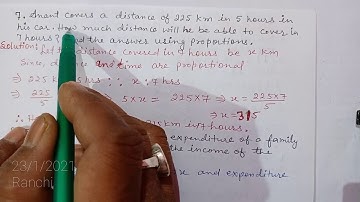 7. Smant covers a distance of 225 km in 5 hours in
his car. How much distance will he be able to cover in
7 hours? Find the answer using proportions.
Solution: Let the distance covered in 7 hours be x km
Since, distance and time are proportional
⇒ 225 5 hrs :: x : 7 hrs
⇒ 225/5 5 × x = 225 × 7 ⇒ x = 225×7/5
x = 315
km in 7 hours.
expenditure of a family
the income of the
x and expenditure
23/1/2021
Ranchi